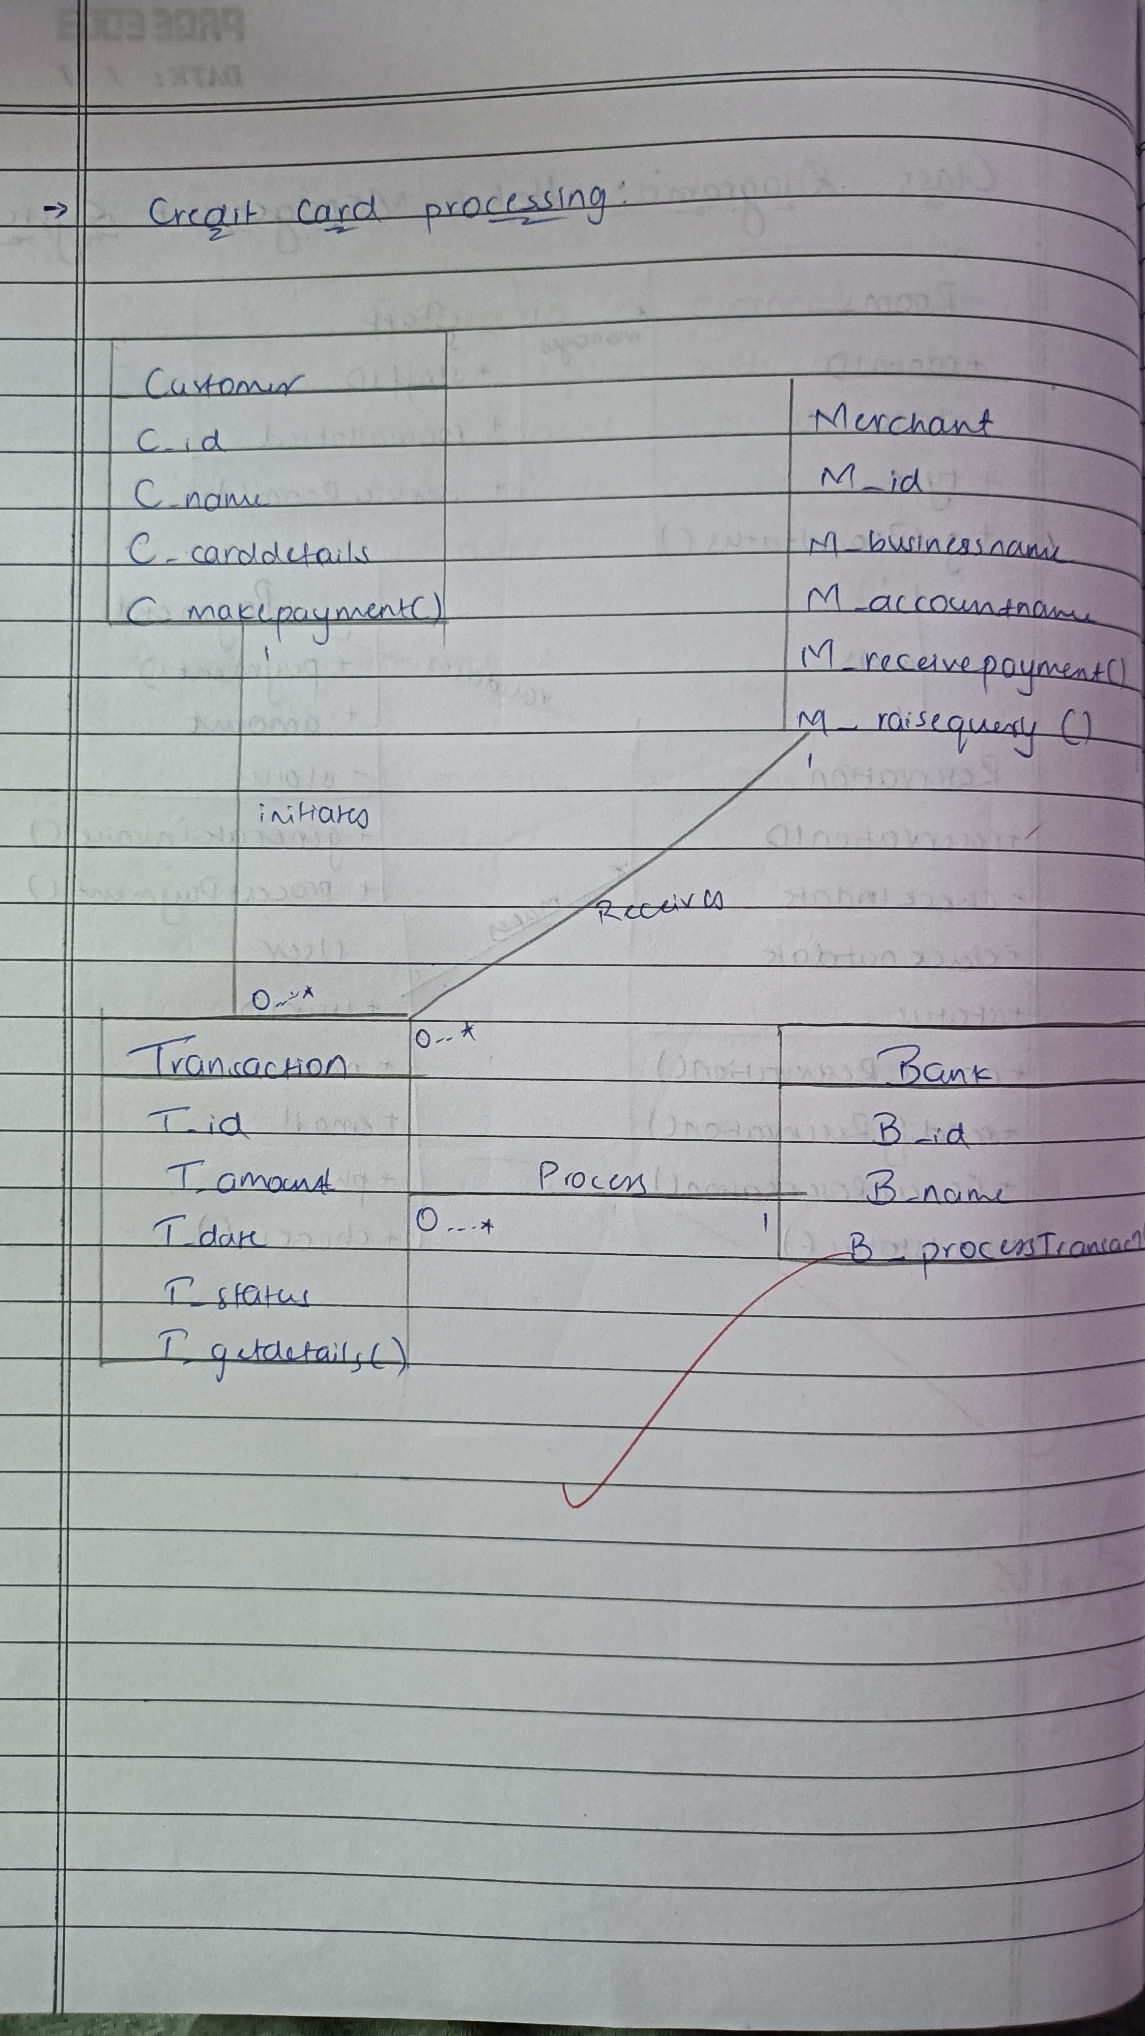 → Credit card processing:
Customer
C_id
C_name
C_carddetails
C_makepayment()
1
Merchant
M_id
M_businessname
M_accountname
M_receivepayment()
M_raisequery ()
1
initiates
Receives
0..*
0..*
Transaction
T_id
T_amount
T_date
T_status
T_getdetails()
Process
0...*
1
Bank
B_id
B_name
B_processTransact